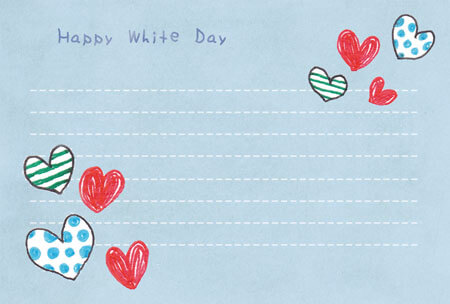 Happy White Day